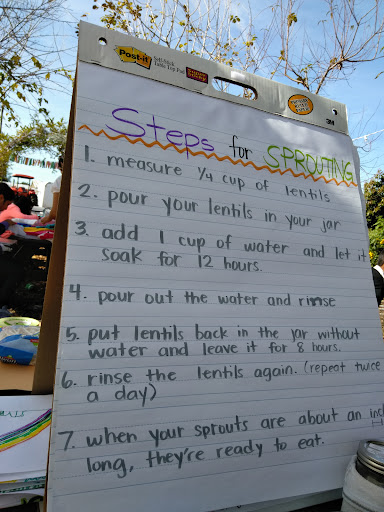 Post-it
3M
Steps for SPROUTING
1. measure 1/4 cup of lentils
2. pour your lentils in your jar
3. add 1 cup of water and let it
soak for 12 hours.
4. pour out the water and rinse
5. put lentils back in the jar without
water and leave it for 8 hours.
6. rinse the lentils again. (repeat twice
a day)
7. when your sprouts are about an inch
long, they're ready to eat.